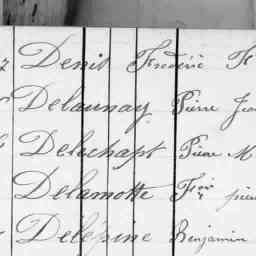 Denis Frédéric
Delaunay Pierre
Delechapt Pierre M
Delamotte Fois
Delépine Benjamin